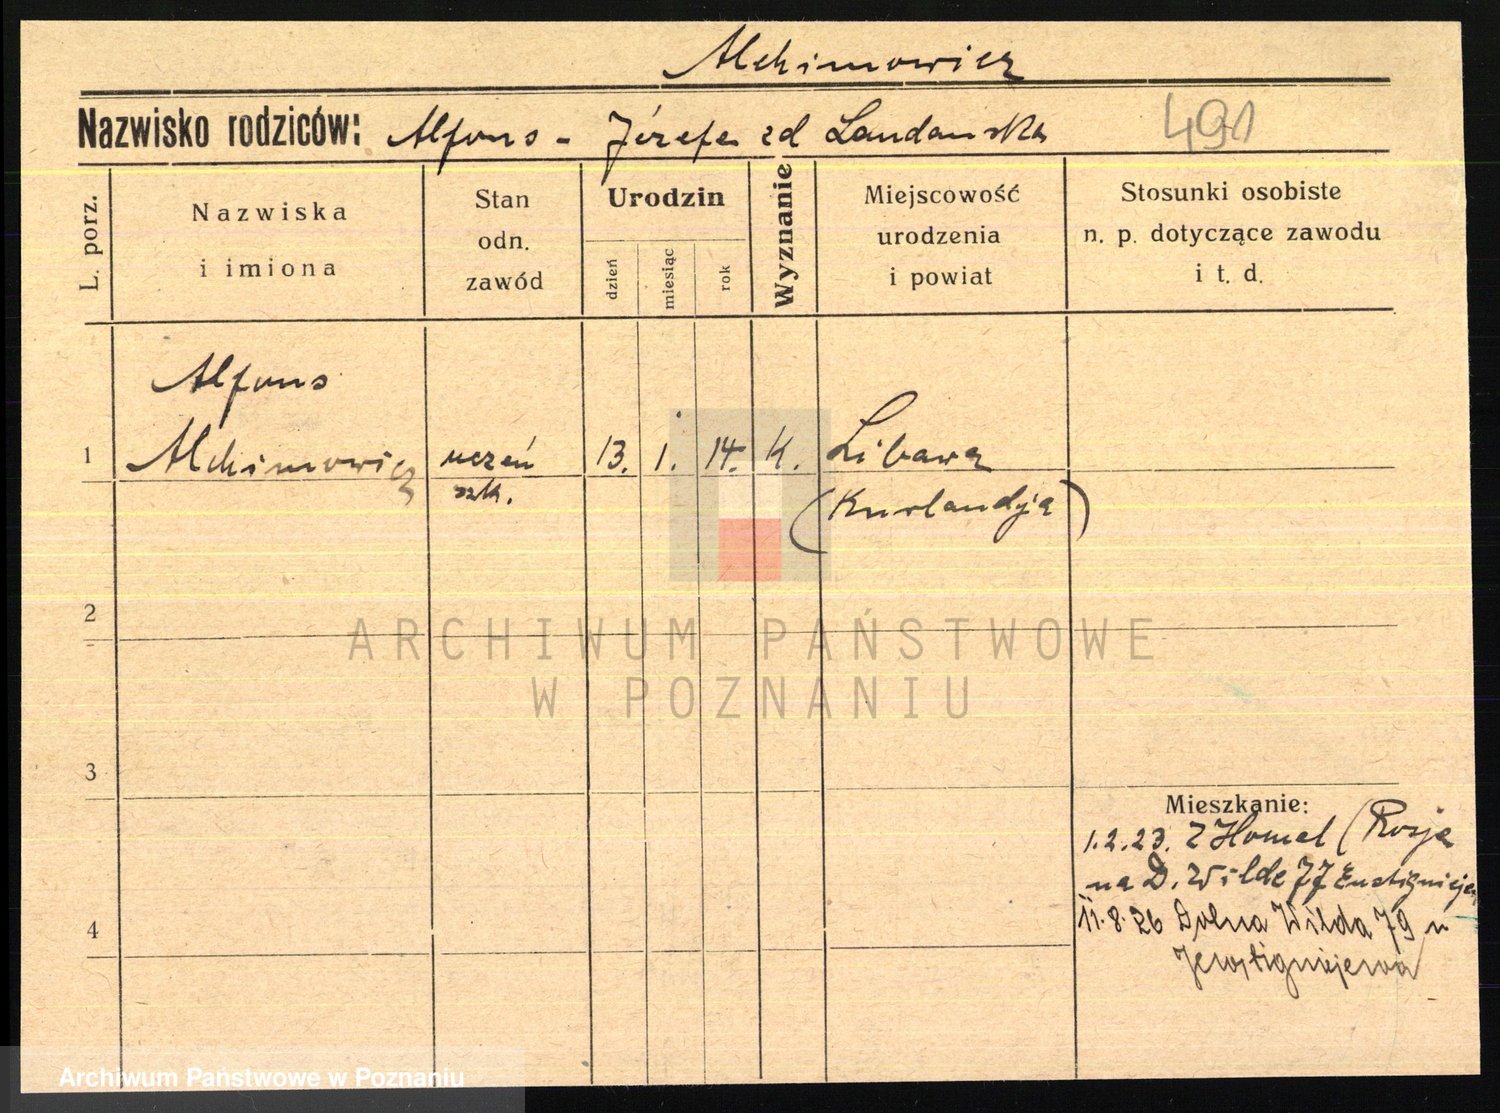 Alchimowicz
Nazwisko rodziców: Alfons - Józefa zd Landańska
491
L. porz.
Nazwiska
i imiona
Stan
odn.
zawód
Urodzin
dzień
miesiąc
rok
Wyznanie
Miejscowość
urodzenia
i powiat
Stosunki osobiste
n. p. dotyczące zawodu
i t. d.
Alfons
1 Alchimowicz uczeń 13. 1. 14. K. Libawa
szk. (Kurlandja)
2
ARCHIWUM PAŃSTWOWE
W POZNANIU
3
Mieszkanie:
1.2.23. Z Homel (Rosja
na D. Wilde 77
11.8.26 Dolna Wilda 79 u
4
Jewstigniejewa
Archiwum Państwowe w Poznaniu